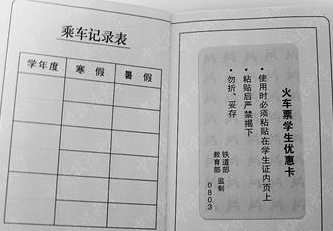 乘车记录表
学年度 寒 假 暑 假
火车票学生优惠卡
• 使用时必须粘贴在学生证内页上
• 粘贴后严禁揭下
• 勿折、妥存
铁道部
教育部 监制
0803